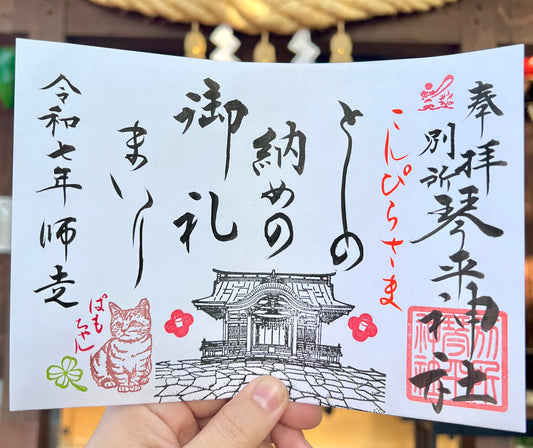 奉拝
別所琴平神社
こんぴらさま
としの
納めの
御礼
まいり
令和七年師走
ぽもちゃん